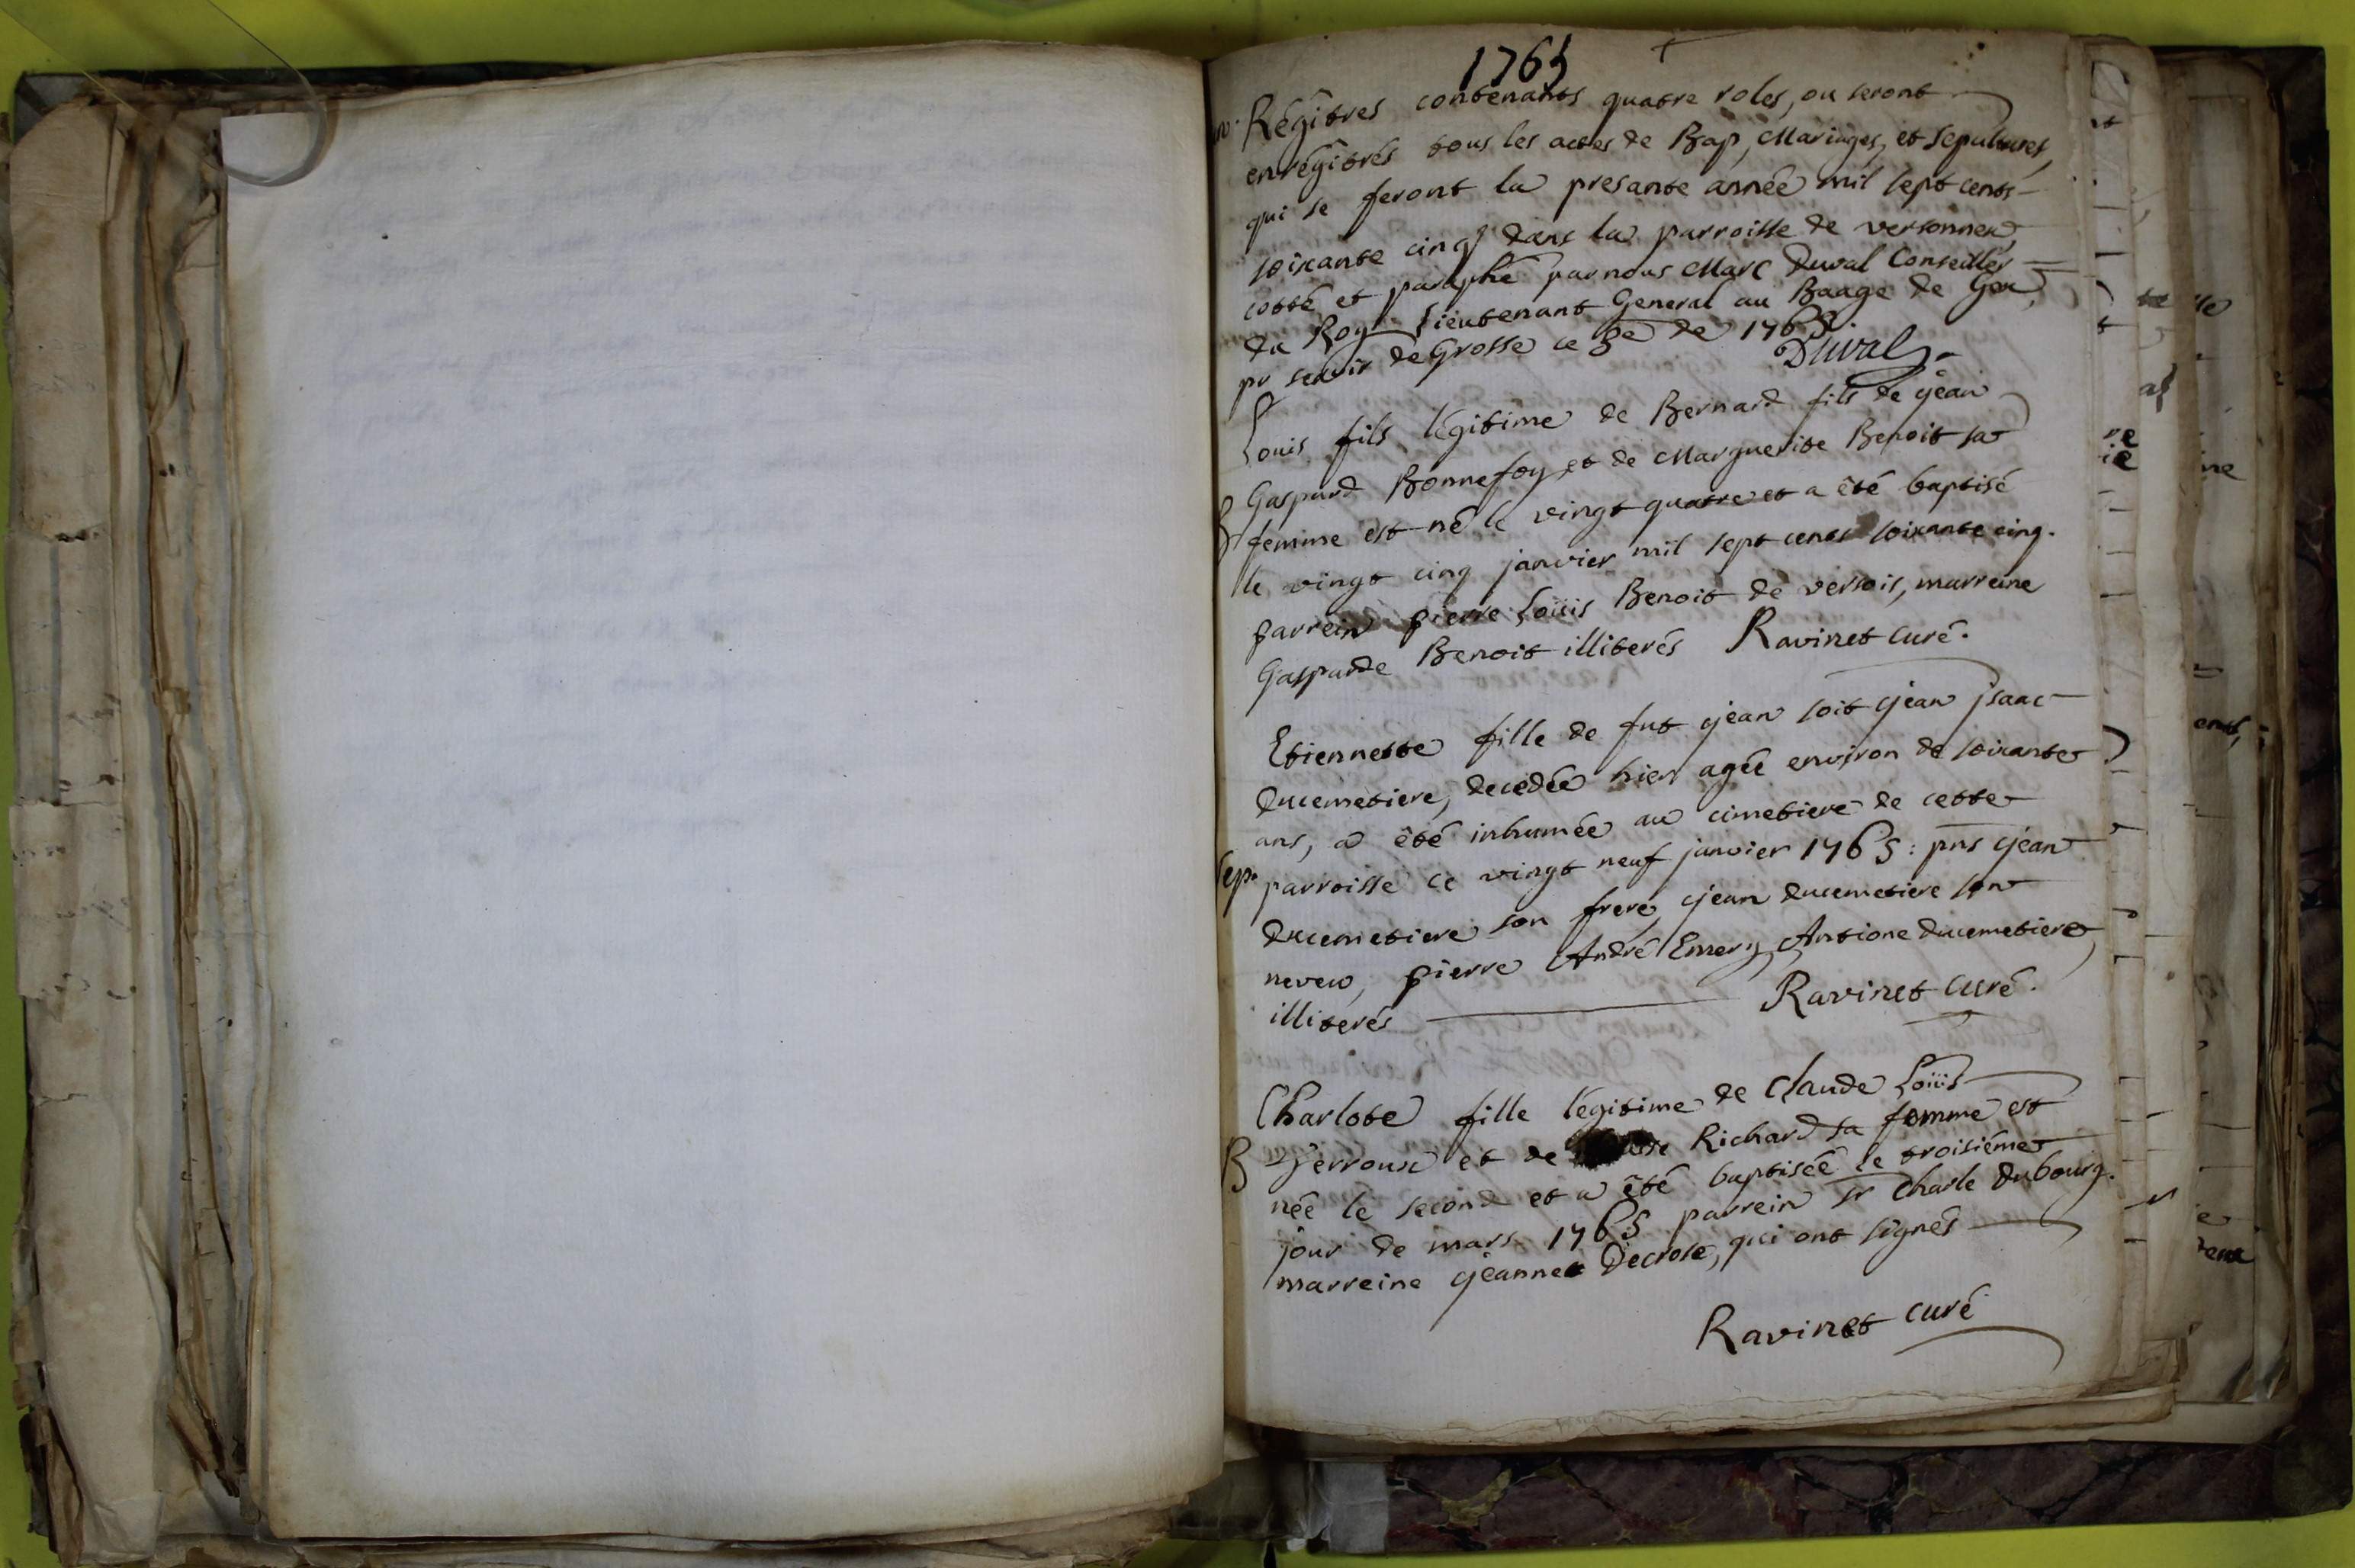 1765
Régîtres contenants quatre roles, ou seront
enrégîtrés tous les actes de Bap, Mariages, et sepultures,
qui se feront la presante année mil sept cents
soixante cinq dans la parroisse de versonnex,
cotté et paraphé par nous Marc Duval Conseiller
du Roy Lieutenant General au Baage de Gex,
pr servir de Grosse ce 3e de 1765.
Duval
Louis fils légitime de Bernard fils de jean
Gaspard Bonnefoy et de Marguerite Benoit sa
B femme est né le vingt quatre et a été baptisé
le vingt cinq janvier mil sept cents soixante cinq.
parrein pierre Loüis Benoit de versoix, marreine
Gasparde Benoit illiterés Ravinet curé.
Etiennette fille de fut jean soit jean jsaac
Ducemetiere, decedée hier agée environ de soixante
ans, a été inhumée au cimetiere de cette
Sep. parroisse ce vingt neuf janvier 1765 : pns jean
Ducemetiere son frere, jean ducemetiere son
neveu, pierre André Emery, Antione Ducemetiere,
illiterés Ravinet curé.
Charlote fille légitime de Claude Loüis
B Perroux et de Richard sa femme est
née le second et a été baptisée le troisiéme
jour de mars 1765 parrein sr Charle Dubourg.
marreine jeanne Decrose, qui ont signés
Ravinet curé